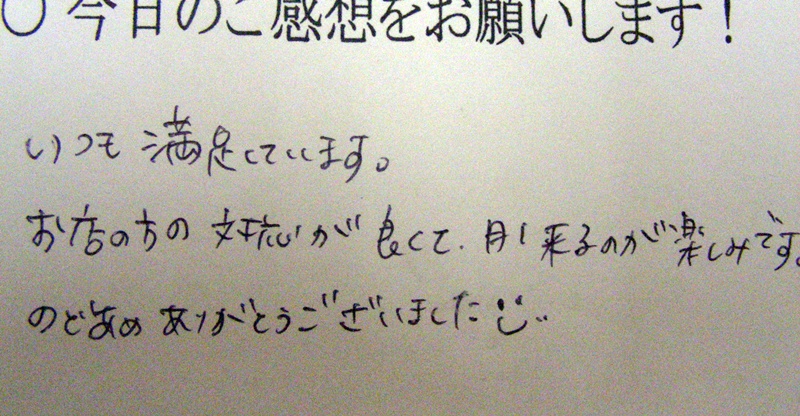 ○ 今日のご感想をお願いします！
いつも 満足しています。
お店の方の 対応が 良くて、月1 来るのが楽しみです。
のどあめ ありがとうございました